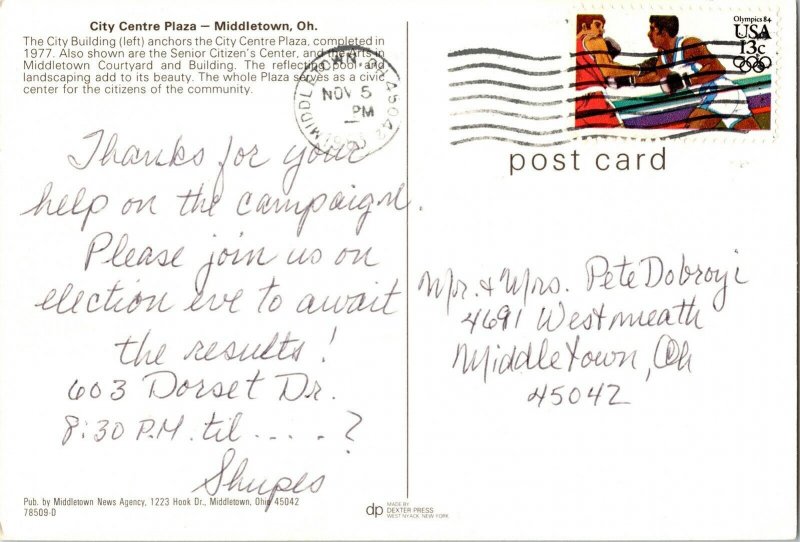 City Centre Plaza — Middletown, Oh.
The City Building (left) anchors the City Centre Plaza, completed in
1977. Also shown are the Senior Citizen's Center, and the Arts in
Middletown Courtyard and Building. The reflecting pool and
landscaping add to its beauty. The whole Plaza serves as a civic
center for the citizens of the community.
MIDDLETOWN, OH 45042
NOV 5
PM
Olympics 84
USA
13c
post card
Thanks for your
help on the campaign.
Please join us on
election eve to await
the results!
603 Dorset Dr.
8:30 P.M. til ....?
Shupes
Mr. & Mrs. Pete Dobrozi
4691 Westmeath
Middletown, Oh
45042
Pub. by Middletown News Agency, 1223 Hook Dr., Middletown, Ohio 45042
78509-D
dp
MADE BY
DEXTER PRESS
WEST NYACK, NEW YORK